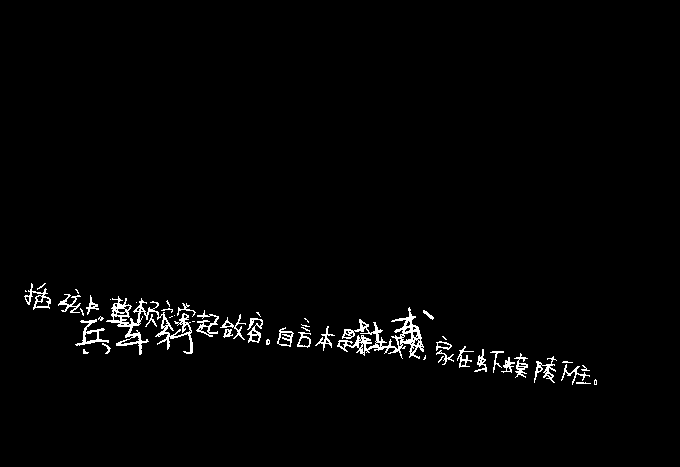 插弦中,整顿衣裳起敛容。自言本是京城女,家在虾蟆陵下住。
兵车行 杜甫